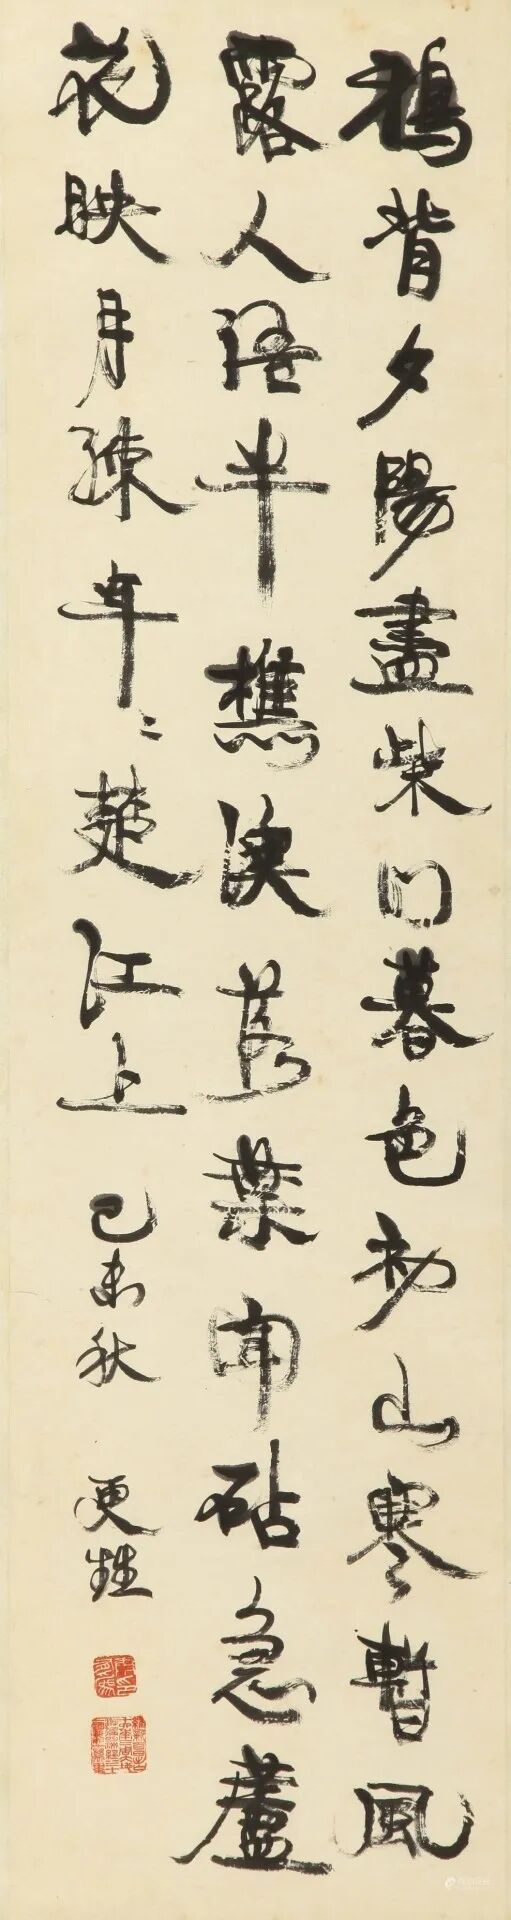 鴉背夕陽盡柴門暮色初山寒暫風
露人語半樵漁落葉聞砧急蘆
花映月疎年〻楚江上
己未秋
更甡